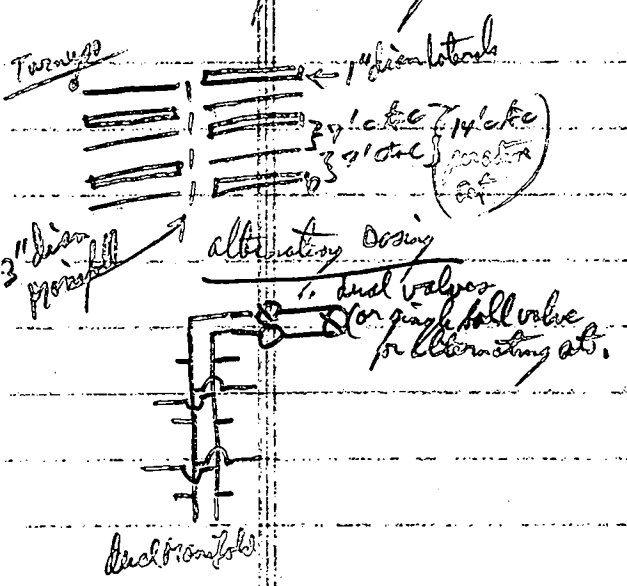 1" diam laterals
7' ctc
7' ctc
14' ctc
3" diam
manifold
alternating Dosing
dual valves
(or single ball valve
for alternating sets.
dual manifold